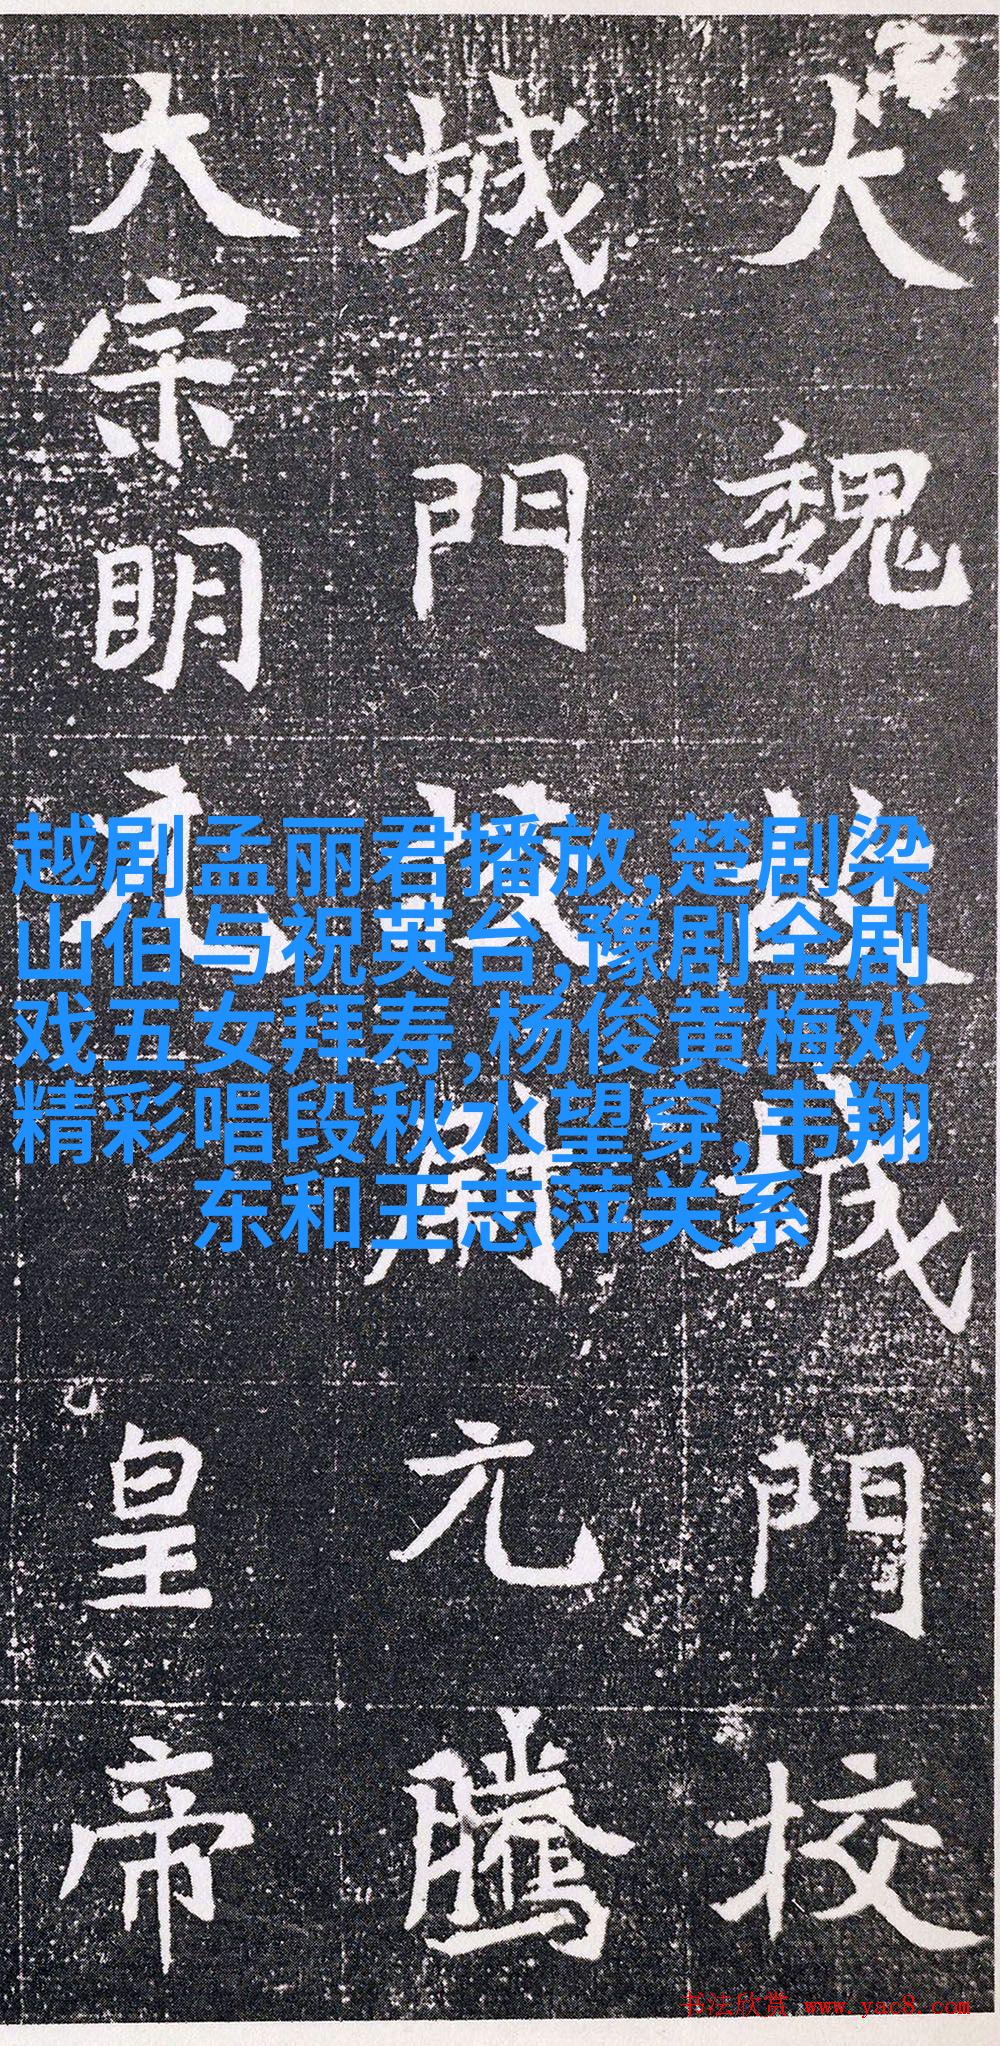 大魏故城門校
城門校元騰
大宗明元皇帝
越剧孟丽君播放,楚剧梁
山伯与祝英台,豫剧全剧
戏五女拜寿,杨俊黄梅戏
精彩唱段秋水望穿,韦翔
东和王志萍关系
书法欣赏 www.yac8.com